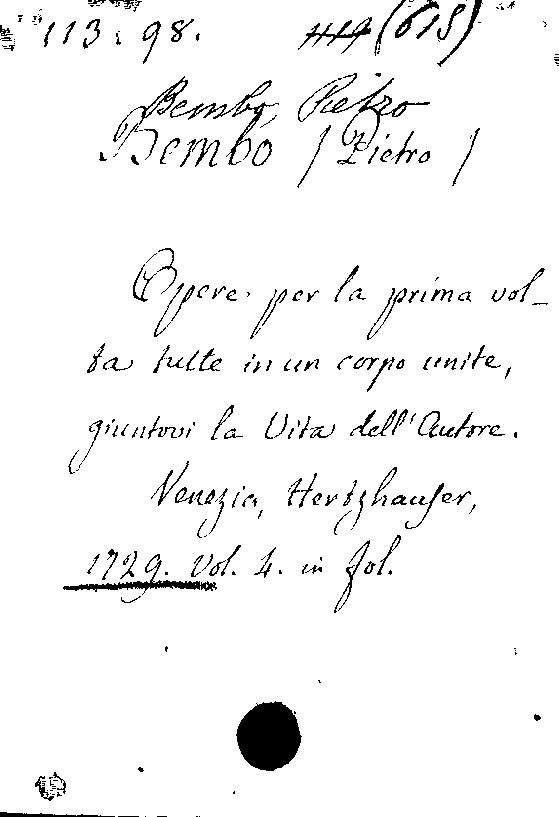 113. 98. (615)
Bembo, Pietro
Bembo (Pietro)
Opere per la prima vol-
ta tutte in un corpo unite,
giuntovi la Vita dell'Autore.
Venezia, Hertzhauser,
1729. Vol. 4. in fol.